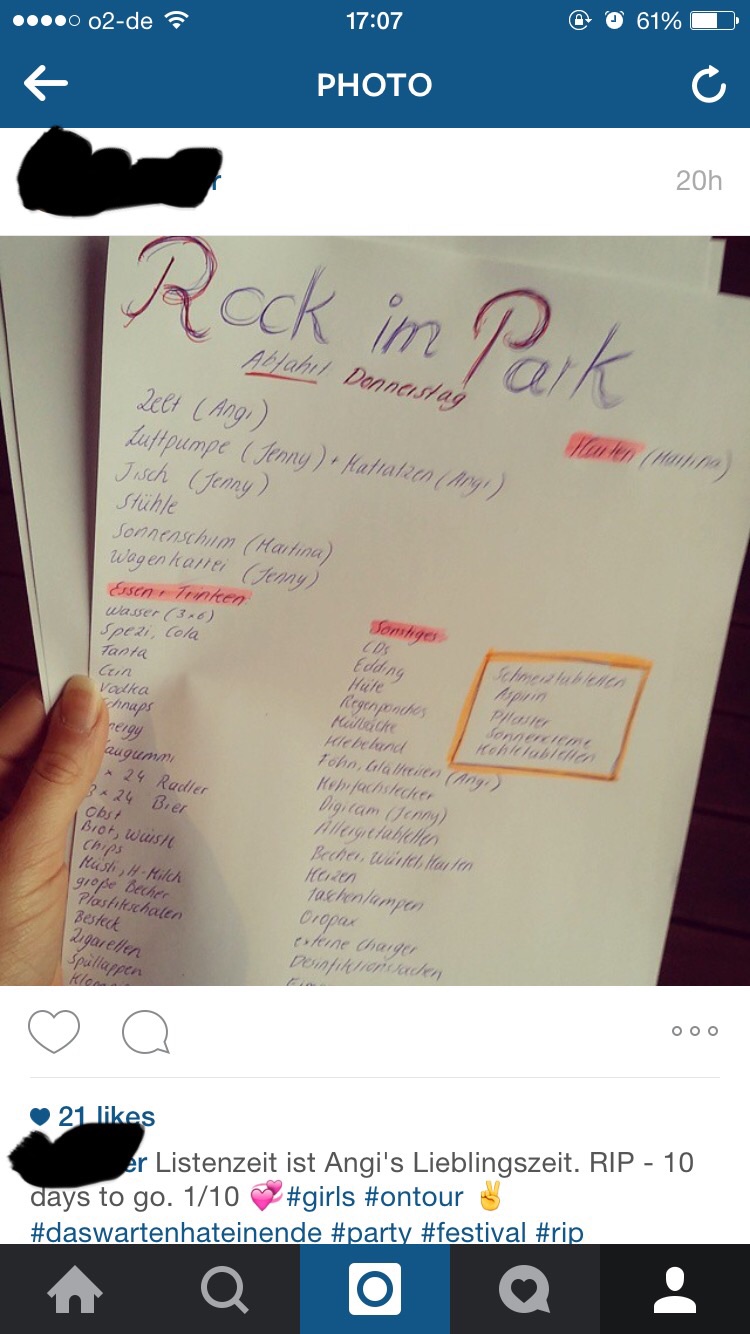 o2-de 17:07 61%
PHOTO
r 20h
Rock im Park
Abfahrt Donnerstag
Zelt (Angi)
Karten (Martina)
Luftpumpe (Jenny) + Matratzen (Angi)
Tisch (Jenny)
Stühle
Sonnenschirm (Martina)
Wagenkartei (Jenny)
Essen + Trinken
Wasser (3x6)
Spezi, Cola
Fanta
Gin
Vodka
Schnaps
nergy
augummi
x 24 Radler
3 x 24 Bier
Obst
Brot, Würstl
Chips
Müsli, H-Milch
große Becher
Plastikschalen
Besteck
Zigaretten
Spüllappen
Sonstiges
CDs
Edding
Hüte
Regenponchos
Müllsäcke
Klebeband
Föhn, Glätteisen (Angi)
Mehrfachstecker
Digicam (Jenny)
Allergietabletten
Becher, Würfel, Karten
Kerzen
Taschenlampen
Oropax
externe Charger
Desinfiktionssachen
Schmerztabletten
Aspirin
Pflaster
Sonnencreme
Kohletabletten
21 likes
er Listenzeit ist Angi's Lieblingszeit. RIP - 10
days to go. 1/10 💞 #girls #ontour ✌
#daswartenhateinende #party #festival #rip